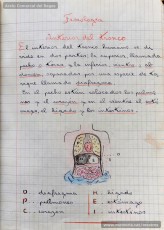 Fisiología
Interior del Tronco
El interior del tronco humano se di-
vide en dos partes: la superior, llamada
pecho o tórax y la inferior, vientre o ab-
domen, separadas por una especie de ta-
bique llamado diafragma.
En el pecho están colocados los pulmo-
nes y el corazón, y en el vientre el estó-
mago, el hígado y los intestinos.
D. diafragma H. hígado
P. pulmones E. estómago
C. corazón I. intestinos